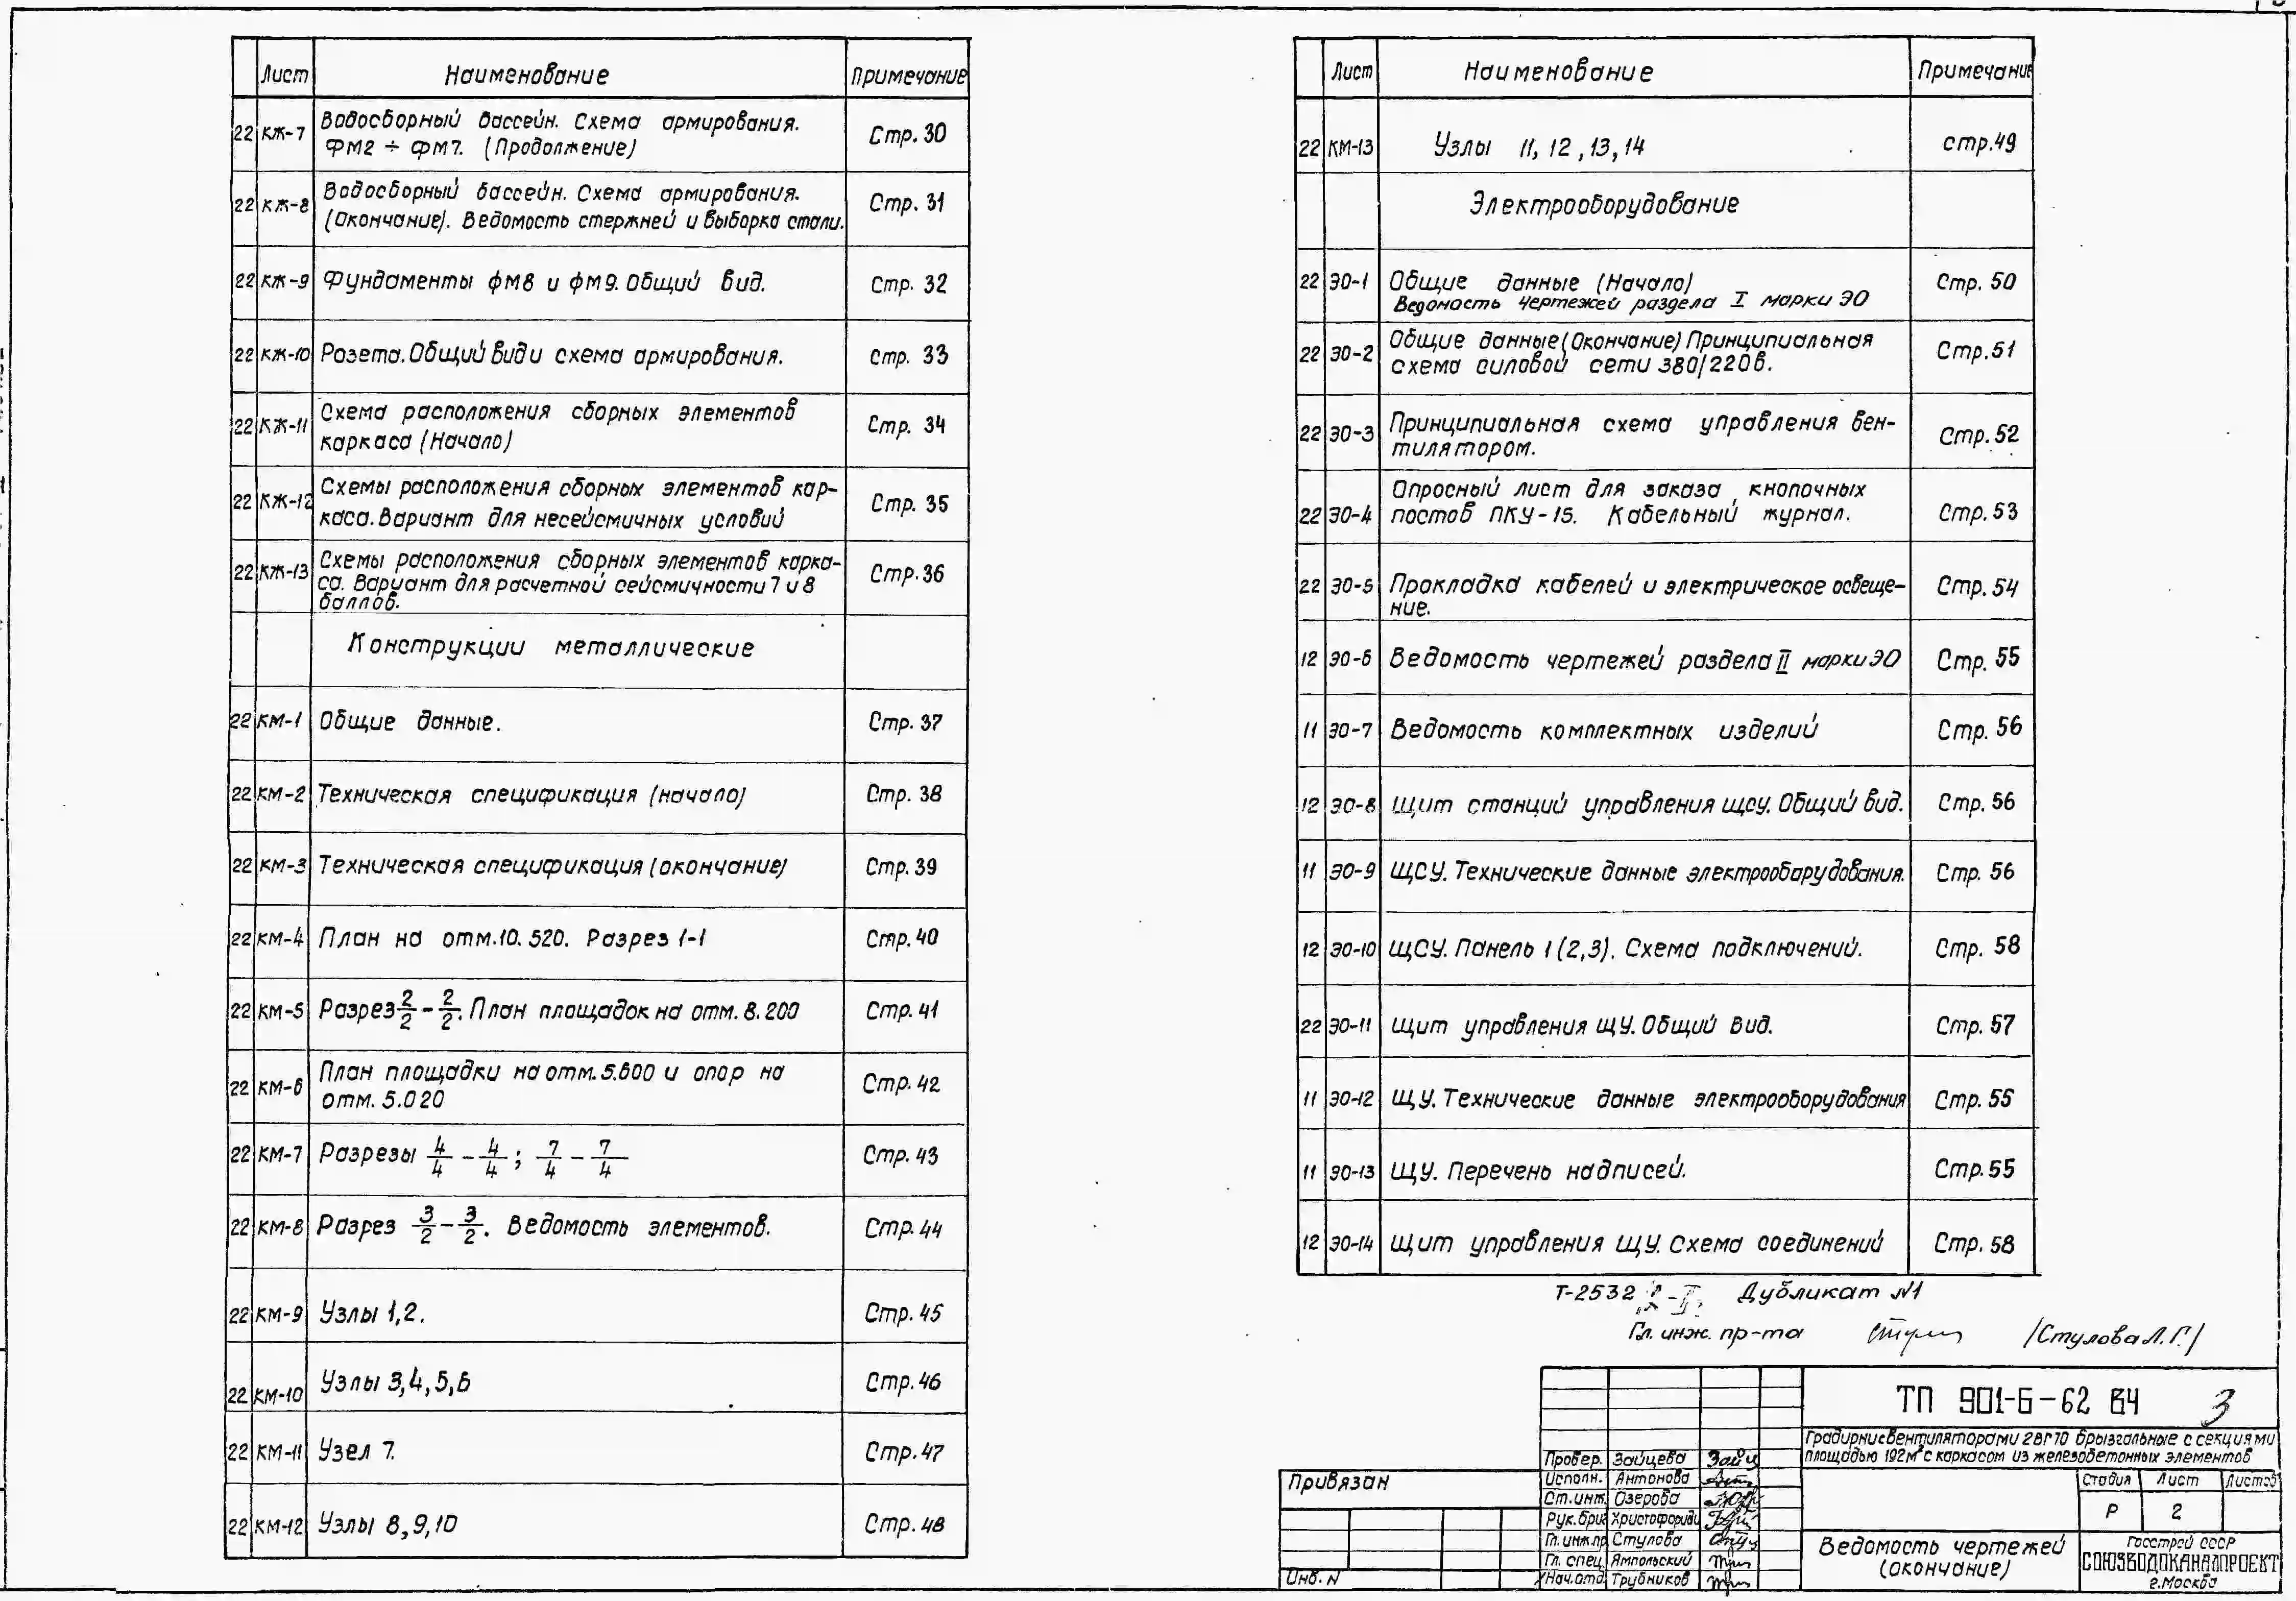 Лист Наименование Примечание
22 КЖ-7 Водосборный бассейн. Схема армирования. Стр. 30
ФМ2 ÷ ФМ7. (Продолжение)
22 КЖ-8 Водосборный бассейн. Схема армирования. Стр. 31
(Окончание). Ведомость стержней и выборка стали.
22 КЖ-9 Фундаменты ФМ8 и ФМ9. Общий вид. Стр. 32
22 КЖ-10 Розета. Общий вид и схема армирования. Стр. 33
22 КЖ-11 Схема расположения сборных элементов Стр. 34
каркаса (Начало)
22 КЖ-12 Схемы расположения сборных элементов кар- Стр. 35
каса. Вариант для несейсмичных условий
22 КЖ-13 Схемы расположения сборных элементов карка- Стр. 36
са. Вариант для расчетной сейсмичности 7 и 8
баллов.
Конструкции металлические
22 КМ-1 Общие данные. Стр. 37
22 КМ-2 Техническая спецификация (начало) Стр. 38
22 КМ-3 Техническая спецификация (окончание) Стр. 39
22 КМ-4 План на отм. 10.520. Разрез 1-1 Стр. 40
22 КМ-5 Разрез 2/2 - 2/2. План площадок на отм. 8.200 Стр. 41
22 КМ-6 План площадки на отм. 5.600 и опор на Стр. 42
отм. 5.020
22 КМ-7 Разрезы 4/4 - 4/4; 7/4 - 7/4 Стр. 43
22 КМ-8 Разрез 3/2 - 3/2. Ведомость элементов. Стр. 44
22 КМ-9 Узлы 1,2. Стр. 45
22 КМ-10 Узлы 3,4,5,6 Стр. 46
22 КМ-11 Узел 7. Стр. 47
22 КМ-12 Узлы 8,9,10 Стр. 48
Лист Наименование Примечание
22 КМ-13 Узлы 11, 12, 13, 14 стр. 49
Электрооборудование
22 ЭО-1 Общие данные (Начало) Стр. 50
Ведомость чертежей раздела I марки ЭО
22 ЭО-2 Общие данные (Окончание) Принципиальная Стр. 51
схема силовой сети 380/220в.
22 ЭО-3 Принципиальная схема управления вен- Стр. 52
тилятором.
22 ЭО-4 Опросный лист для заказа кнопочных Стр. 53
постов ПКУ-15. Кабельный журнал.
22 ЭО-5 Прокладка кабелей и электрическое освеще- Стр. 54
ние.
12 ЭО-6 Ведомость чертежей раздела II марки ЭО Стр. 55
11 ЭО-7 Ведомость комплектных изделий Стр. 56
12 ЭО-8 Щит станций управления щсу. Общий вид. Стр. 56
11 ЭО-9 ЩСУ. Технические данные электрооборудования. Стр. 56
12 ЭО-10 ЩСУ. Панель 1 (2,3). Схема подключений. Стр. 58
22 ЭО-11 Щит управления ЩУ. Общий вид. Стр. 57
11 ЭО-12 ЩУ. Технические данные электрооборудования Стр. 55
11 ЭО-13 ЩУ. Перечень надписей. Стр. 55
12 ЭО-14 Щит управления ЩУ. Схема соединений Стр. 58
Т-2532 Дубликат №1
Гл. инж. пр-та /Стулова Л.Г./
ТП 901-6-62 ВЧ 3
Градирни с вентиляторами 2ВГ70 брызгальные с секциями
площадью 192м² с каркасом из железобетонных элементов
Привязан
Инв. N
Провер. Зайцева
Исполн. Антонова
Ст.инж. Озерова
Рук.бриг Христофориди
Гл.инж.пр Стулова
Гл. спец. Ямпольский
Нач.отд. Трубников
Стадия Лист Листов
Р 2
Ведомость чертежей
(окончание)
Госстрой СССР
СОЮЗВОДОКАНАЛПРОЕКТ
г. Москва